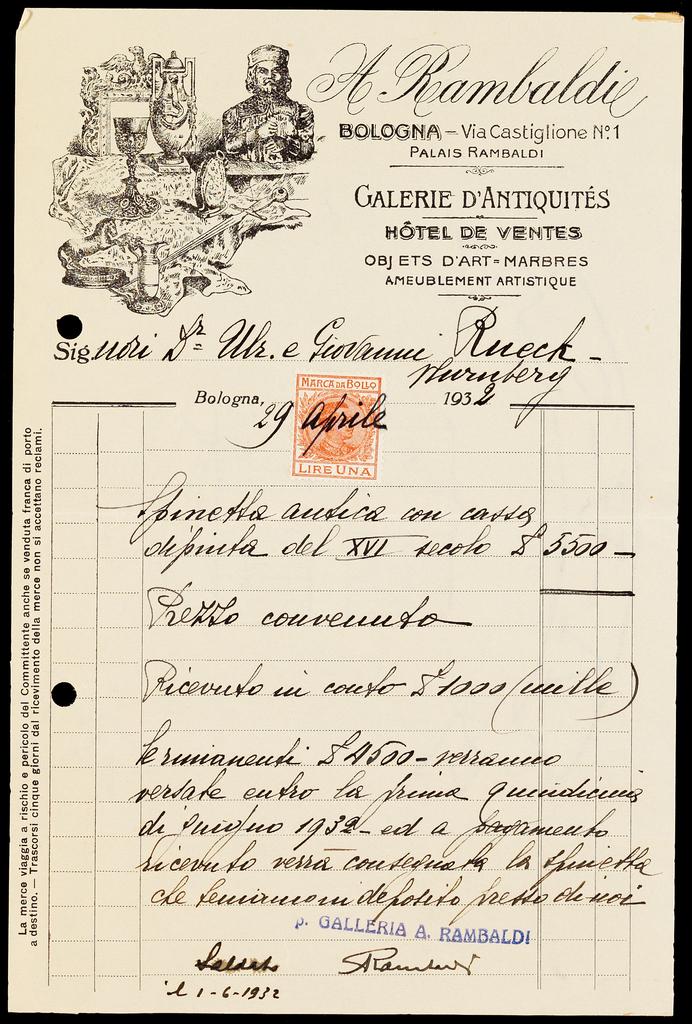 A. Rambaldi
BOLOGNA – Via Castiglione N.º 1
PALAIS RAMBALDI
GALERIE D'ANTIQUITÉS
HÔTEL DE VENTES
OBJETS D'ART = MARBRES
AMEUBLEMENT ARTISTIQUE
Sig.nori Dr Ulr. e Giovanni Rueck -
Nurnberg
Bologna, 29 Aprile 1932
MARCA DA BOLLO
LIRE UNA
Spinetta antica con cassa
dipinta del XVI secolo £ 5500 —
Prezzo convenuto
Ricevuto in conto £ 1000 (mille)
le rimanenti £ 4500 - verranno
versate entro la prima quindicina
di giugno 1932 - ed a pagamento
ricevuto verrà consegnata la spinetta
che teniamo in deposito presso di noi
p. GALLERIA A. RAMBALDI
Saldato
il 1-6-1932
Rambaldi
La merce viaggia a rischio e pericolo del Committente anche se venduta franca di porto
a destino. — Trascorsi cinque giorni dal ricevimento della merce non si accettano reclami.